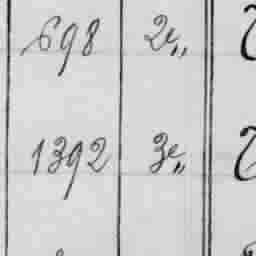 698 2e„
1392 3e„